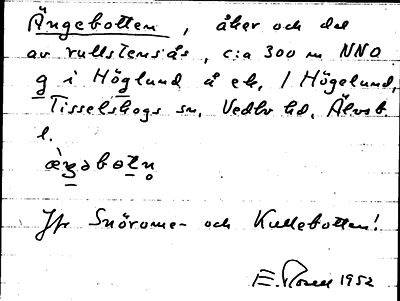 Ängebotten, åker och del
av rullstensås, c:a 300 m NNO
g i Höglund å ek. / Högelund,
Tisselskogs sn, Vedbo hd, Älvsb.
l.
æ̀ŋəbotn̥
Jfr Snörume- och Kullebotten!
E. Rosell 1952